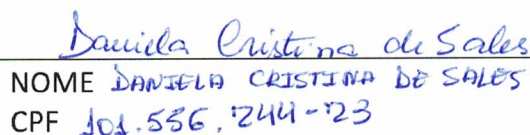 Daniela Cristina de Sales
NOME DANIELA CRISTINA DE SALES
CPF 101.556.744-23